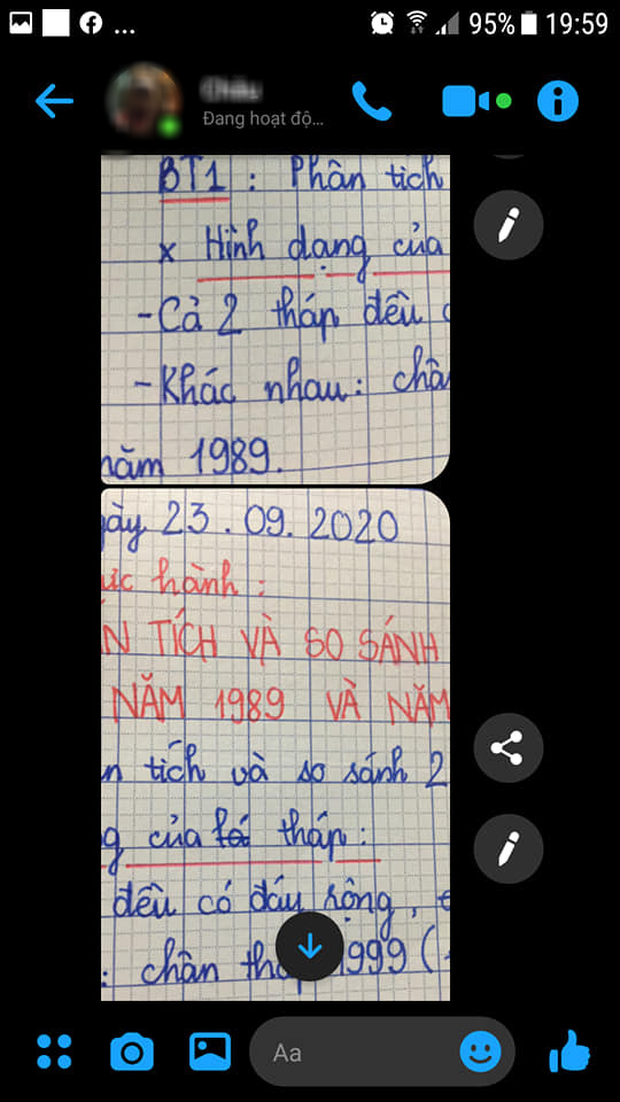 ... 95% 19:59
Đang hoạt độ...
BT1 : Phân tích
x Hình dạng của
- Cả 2 tháp đều
- Khác nhau :
năm 1989.
23.09.2020
hành :
TÍCH VÀ SO SÁNH
NĂM 1989 VÀ NĂM
tích và so sánh 2
của tháp :
đều có đáy rộng,
: chân 1999 (
Aa